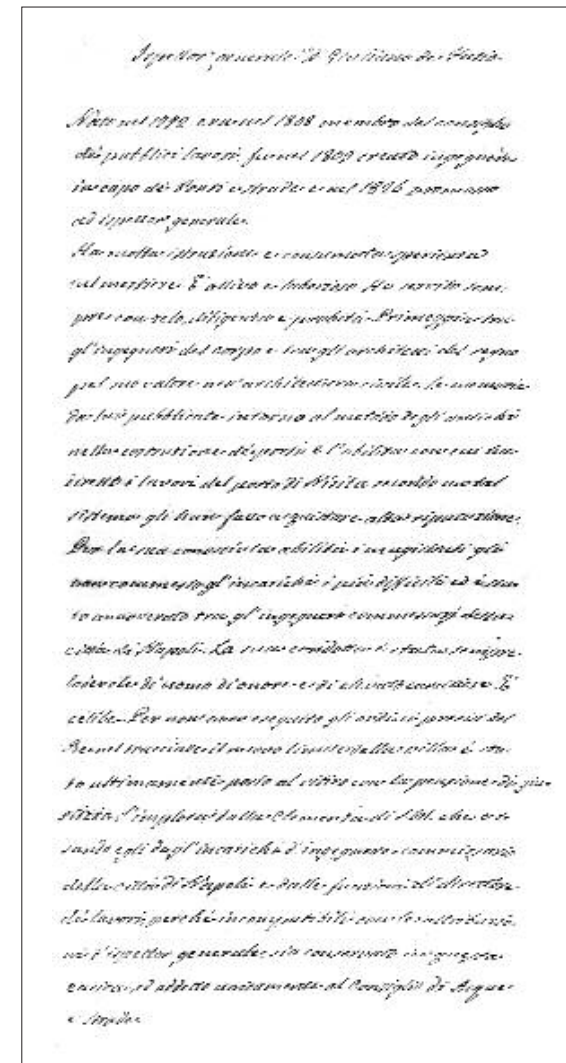 Ispettor generale D. Giuliano de Fazio
Nato nel 1782 era nel 1808 membro del consiglio
dei pubblici lavori, fu nel 1809 creato ingegnere
in capo di Ponti e strade e nel 1826 promosso
ad ispettor generale.
Ha molta istruzione e consumata sperienza
nel mestiere. È attivo e laborioso. Ha servito sem-
pre con zelo, diligenza e probità. Primeggia tra
gl'ingegneri del corpo e tra gli architetti del regno
pel suo valore nell'architettura civile. Le memorie
da lui pubblicate intorno al metodo degli antichi
nella costruzione dei porti e l'abilità con cui ha
diretto i lavori del porto di Nisita secondo un tal
sistema gli han fatto acquistare alta riputazione.
Per la sua conosciuta abilità i magistrati gli
han commesso gl'incarichi i più difficili ed è sta-
to annoverato tra gl'ingegneri commessarj della
città di Napoli. La sua condotta è stata sempre
lodevole di uomo d'onore e di elevato carattere. È
celibe. Per non aver eseguito gli ordini precisi del
Re nel tracciare il nuovo limite della villa è sta-
to ultimamente posto al ritiro con la pensione di giu-
stizia. S'implora dalla Clemenza di S.M. che ces-
sando egli dagl'incarichi d'ingegnere commissario
della città di Napoli e dalle funzioni di direttore
dei lavori, perché incompatibili con le attribuzio-
ni d'ispettor generale, sia conservato in questa
carica, ed addetto unicamente al Consiglio di Acque
e strade